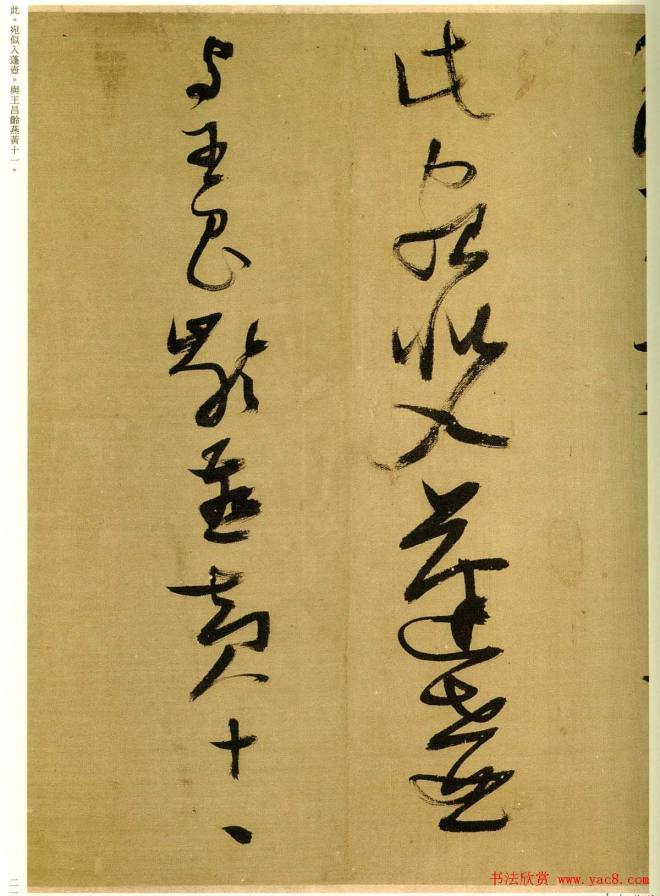 此宛似入蓬壺
与王昌齡燕黄十一
此。宛似入蓬壺。與王昌齡燕黃十一。
书法欣赏 www.yac8.com